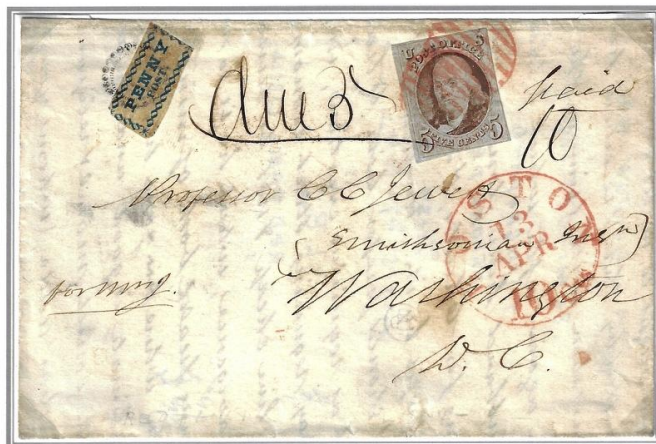 PENNY
POST
Due 5
U S
POST OFFICE
5 FIVE CENTS 5
paid
10
Professor C C Jewett
Smithsonian Inst
Washington
D. C.
BOSTON
13
APR
10